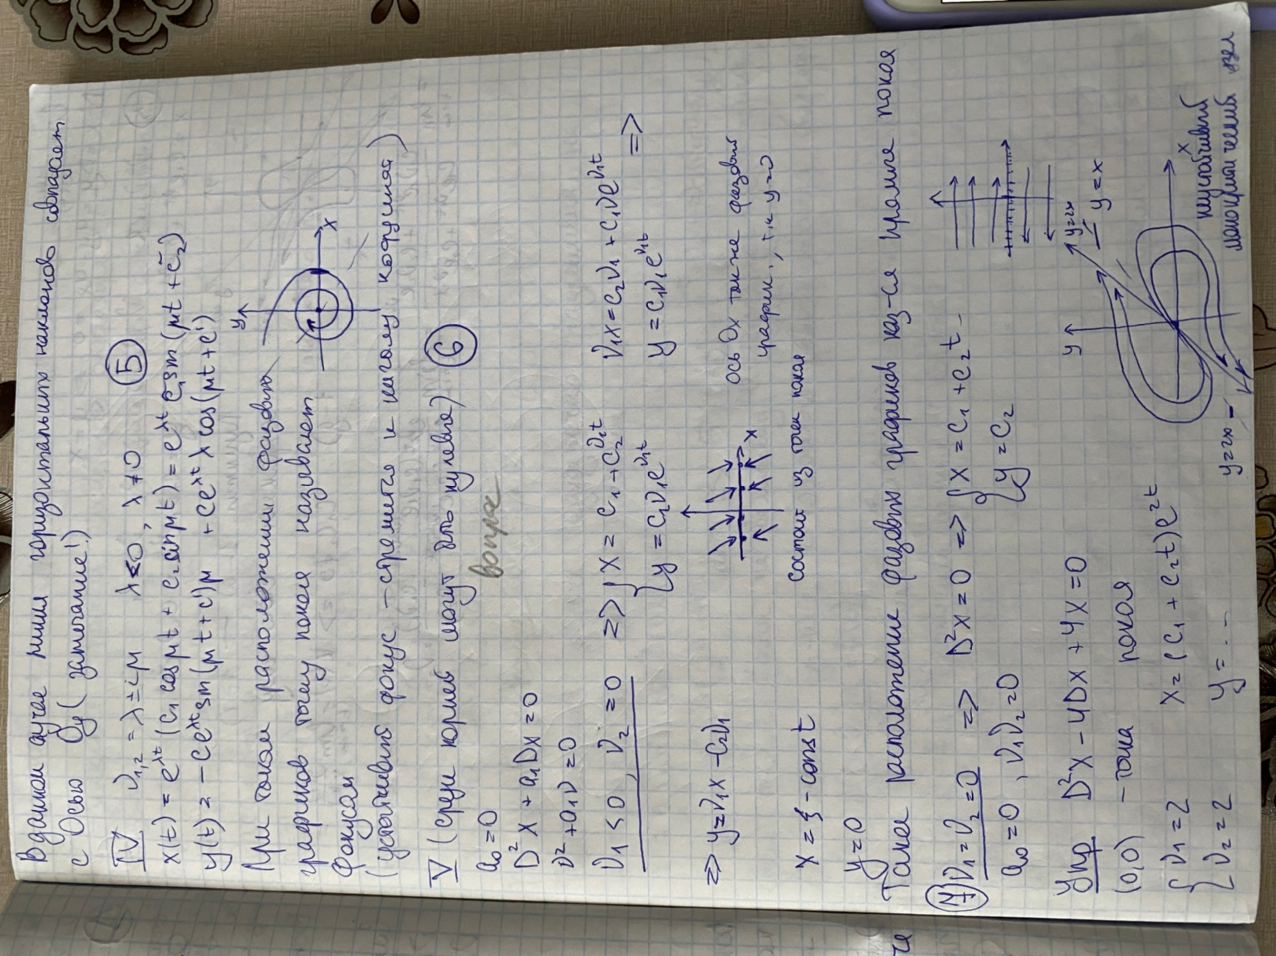 В данном случае линия горизонтальных наклонов совпадает
с Осью Oy (замечание!)
IV ν₁,₂ = λ ± iμ λ<0, λ≠0 ⑤
x(t) = e^{λt} (c₁ cos μt + c₂ sin μt) = e^{λt} c₁ sin (μt + c̃₂)
y(t) = -c e^{λt} sin (μt + c')μ + c e^{λt} λ cos (μt + c')
При таком расположении фазовых
графиков точку покоя называют
фокусом
y
x
(устойчивый фокус - стремится к началу координат)
V (среди корней могут быть нулевые) ⑥
вопрос
a₀ = 0
D²x + a₁Dx = 0
ν² + a₁ν = 0
ν₁ < 0, ν₂ = 0 => { x = c₁ + c₂^{ν₁t}
y = c₂ν₁e^{ν₁t}
ν₁x = c₂ν₁ + c₁ν e^{ν₁t}
y = c₁ν₁e^{ν₁t} =>
=> y = ν₁x - c₂ν₁
x
ось Ox также фазовый
график, т.к y=0
x = ξ - const
y = 0
состоит из точек покоя
Такое расположение фазовых графиков наз-ся прямые покоя
⑦ ν₁ = ν₂ = 0 => D²x = 0 => { x = c₁ + c₂t
y = c₂
a₀ = 0, ν₁ν₂ = 0
Упр D²x - 4Dx + 4x = 0
(0,0) - точка покоя
{ ν₁ = 2
ν₂ = 2
x = (c₁ + c₂t)e^{2t}
y = ...
y
y=2x
y=x
x
y=2x
неустойчивый
узел